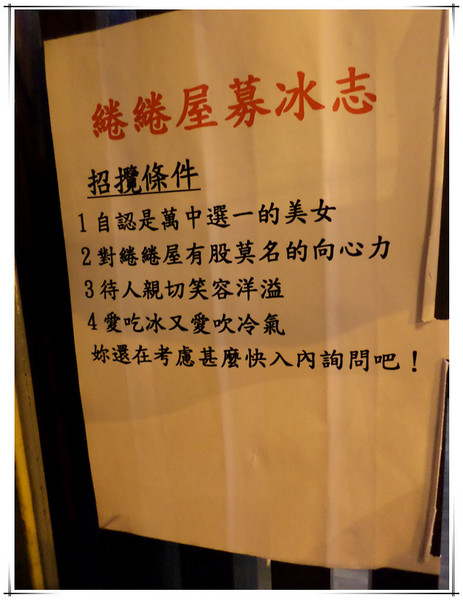 綣綣屋募冰志
招攬條件
1自認是萬中選一的美女
2對綣綣屋有股莫名的向心力
3待人親切笑容洋溢
4愛吃冰又愛吹冷氣
妳還在考慮甚麼快入內詢問吧！